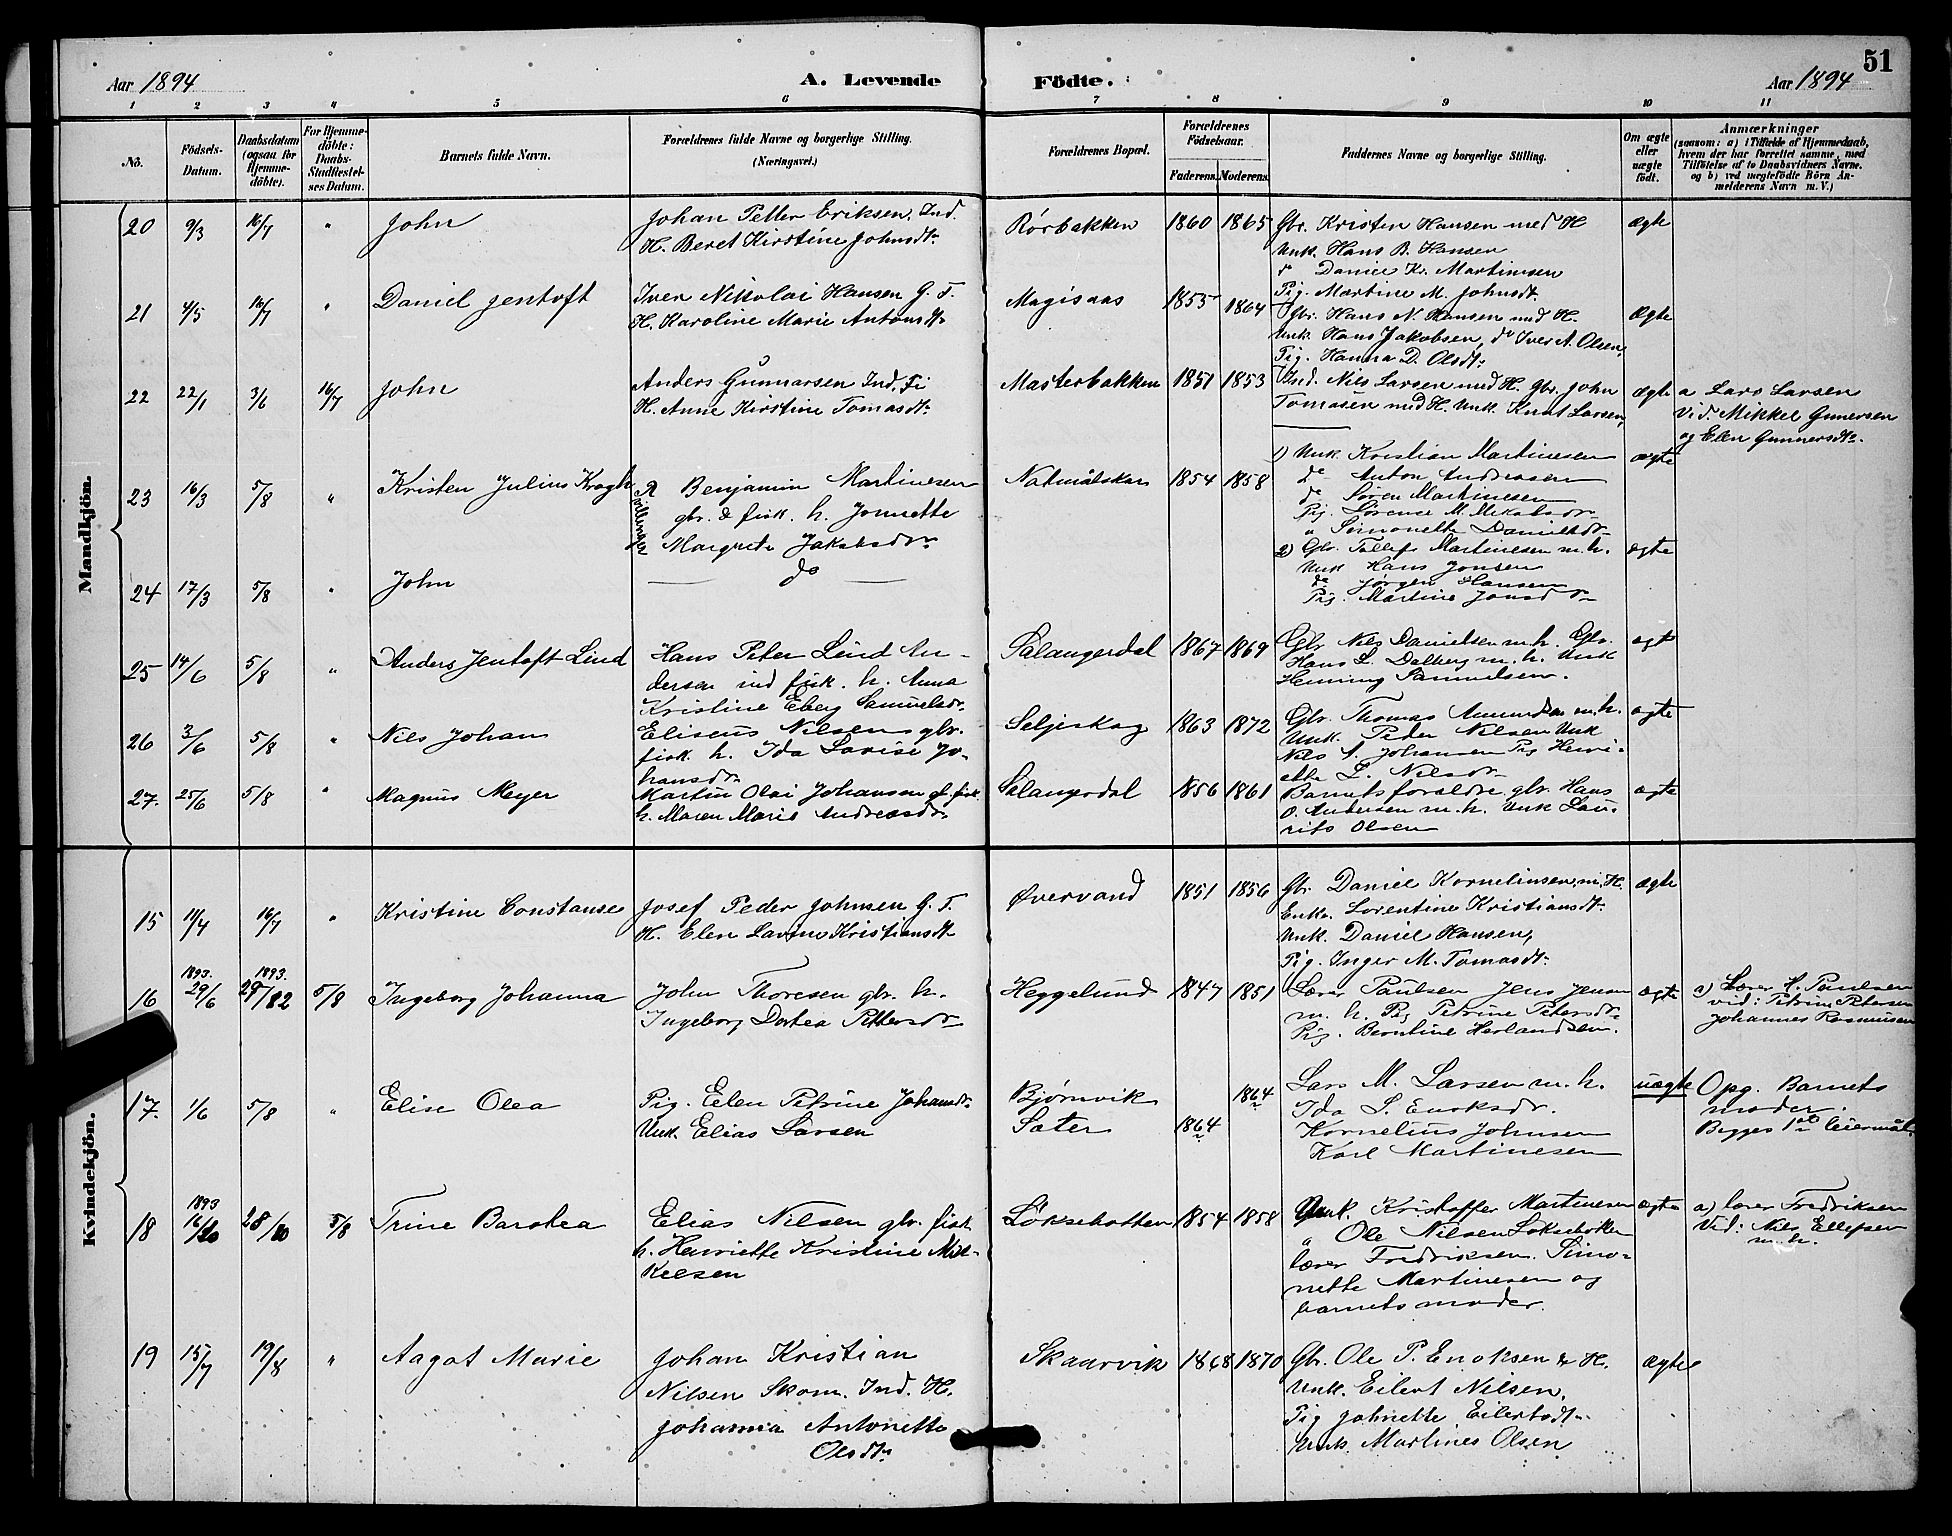 51
Aar 1894 A. Levende Födte. Aar 1894
1 2 3 4 5 6 7 8 9 10 11
No.
Födsels-
Datum.
Daabsdatum
(ogsaa for
Hjemme-
döbte).
For Hjemme-
döbte:
Daabs-
Stadfæstel-
ses Datum.
Barnets fulde Navn.
Forældrenes fulde Navne og borgerlige Stilling.
(Næringsvei.)
Forældrenes Bopæl.
Forældrenes
Födselsaar.
Faderens. Moderens.
Faddernes Navne og borgerlige Stilling.
Om ægte
eller
uægte
født.
Anmærkninger
(saasom: a) i Tilfælde af Hjemmedaab,
hvem der har forrettet samme, med
Tilföielse af to Daabsvidners Navne.
og b) ved uægtefödte Börn An-
melderens Navn m. V.)
Mandkjön.
20 9/3 16/7 " John
Johan Petter Eriksen, Ind.
H. Beret Kirstine Johnsdt.
Rörbakken 1860 1865
Gbr. Kristen Hansen med H
Unk. Hans B. Hansen
d Daniel Kr. Martinsen
Pig. Martine M. Johnsdt.
ægte
21 4/5 16/7 " Daniel Jentoft
Iver Nikolai Hansen G. F.
H. Karoline Marie Antonsdt.
Magisaas 1855 1864
Gbr. Hans N. Hansen med H.
Unk. Hans Jakobsen, do Iver A. Olsen,
Pig. Hanna D. Olsdt.
Ægte
22 22/1 3/6 16/7 John
Anders Gunnarsen Ind. Fi
H. Anne Kirstine Tomasdt.
Masterbakken 1851 1853
Ind. Nils Larsen med H. Gbr. John
Tomasen med H. Unk. Knut Larsen,
ægte
a Lars Larsen
Vid. Mikkel Gunersen
og Elen Gunnersdt.
23 16/3 5/8 " Kristen Julius Krogh
Tvillinger
Benjamin Martinesen
gbr. & fisk. h. Jonette
Margrete Jakobsdr.
Natmålskar 1854 1858
1) Unk Kristian Martinesen
do Anton Andreasen
do Søren Martinesen
Pig. Lorence M. Mikalsdr.
" Simonette Danielsdr.
ægte
24 17/3 5/8 " John
do
2) Gbr. Tollef Martinesen m. h.
Unk Hans Jonsen
do Jørgen Hansen
Pig. Martine Jonsdr.
ægte
25 14/6 5/8 " Anders Jentoft Lind
Hans Peter Lind An-
dersen ind fisk. h. Anna
Kristine Eberg Samuelsdr.
Salangerdal 1867 1869
Gbr Nils Danielsen m. h. Gbr.
Hans L. Dalberg m. h. Unk
Henning Samuelsen.
ægt
26 3/6 5/8 " Nils Johan
Eliseus Nilsen gbr.
fisk. h. Ida Lovise Jo-
hansdr.
Seljeskog 1863 1872
Gbr. Thomas Amundsen m. h.
Unk. Peder Nilsen Unk
Nils A. Johansen Pig Henri-
ette L. Nilsdr.
ægte
27. 25/6 5/8 " Magnus Meyer
Martin Olai Johansen gb. fisk.
h. Maren Marie Andreasdr.
Salangerdal 1856 1861
Barnets forældre, gbr. Hans
O. Andersen m. h. Unk Lau-
rits Olsen
ægte
Kvindekjön.
15 11/4 16/7 " Kristine Constanse
Josef Peder Johnsen G. F.
H. Elen Lavine Kristiansdt.
Øvervand 1851 1856
Gbr. Daniel Kornelinsen, m. H.
Enke. Lorentine Kristiansdt.
Unk. Daniel Hansen,
Pig. Inger M. Tomasdt.
ægte
16 1893. 29/6 1893. 5/8 Ingeborg Johanna
John Thoresen gbr. h.
Ingeborg Dortea Pettersdr.
Heggelund 1847 1851
Lærer Paulsen Jens Jensen
m. h. Pig Petrine Petersdr.
Pig. Berntine Herlandsen.
ægte
a) Lærer H. Paulsen
vid: Petrine Petersen
Johannes Rasmusen
17. 1/6 5/8 " Elise Olea
Pig. Elen Petrine Johansdr.
Unk. Elias Larsen
Bjørnvik 1864
Sæter 1864
Lars M. Larsen m. h.
Ida S. Enoksdr.
Kornelius Johnsen
Karl Martinesen
uægte
Opg. Barnets
moder.
Begges 1ste leiermål.
18 1893 16/10 28/10 5/8 Trine Barolea
Elias Nilsen gbr. fisk
h. Henriette Kristine Mik-
kelsen
Löksebotten 1854 1858
Unk. Kristoffer Martinesen
" Ole Nilsen Löksebotten
lærer Fredriksen. Simo-
nette Martinesen og
barnets moder.
ægte
a) lærer Fredriksen
Vid: Nils Ellefsen
m. h.
19 15/7 19/8 " Aagot Marie
Johan Kristian
Nilsen Skom. Ind. H.
Johanna Antonette
Olsdt.
Skaarvik 1868 1870
Gbr. Ole P. Enoksen & H.
Unk. Eilert Nilsen,
Pig Johnette Eilertsdt.
Unk. Martines Olsen
ægte